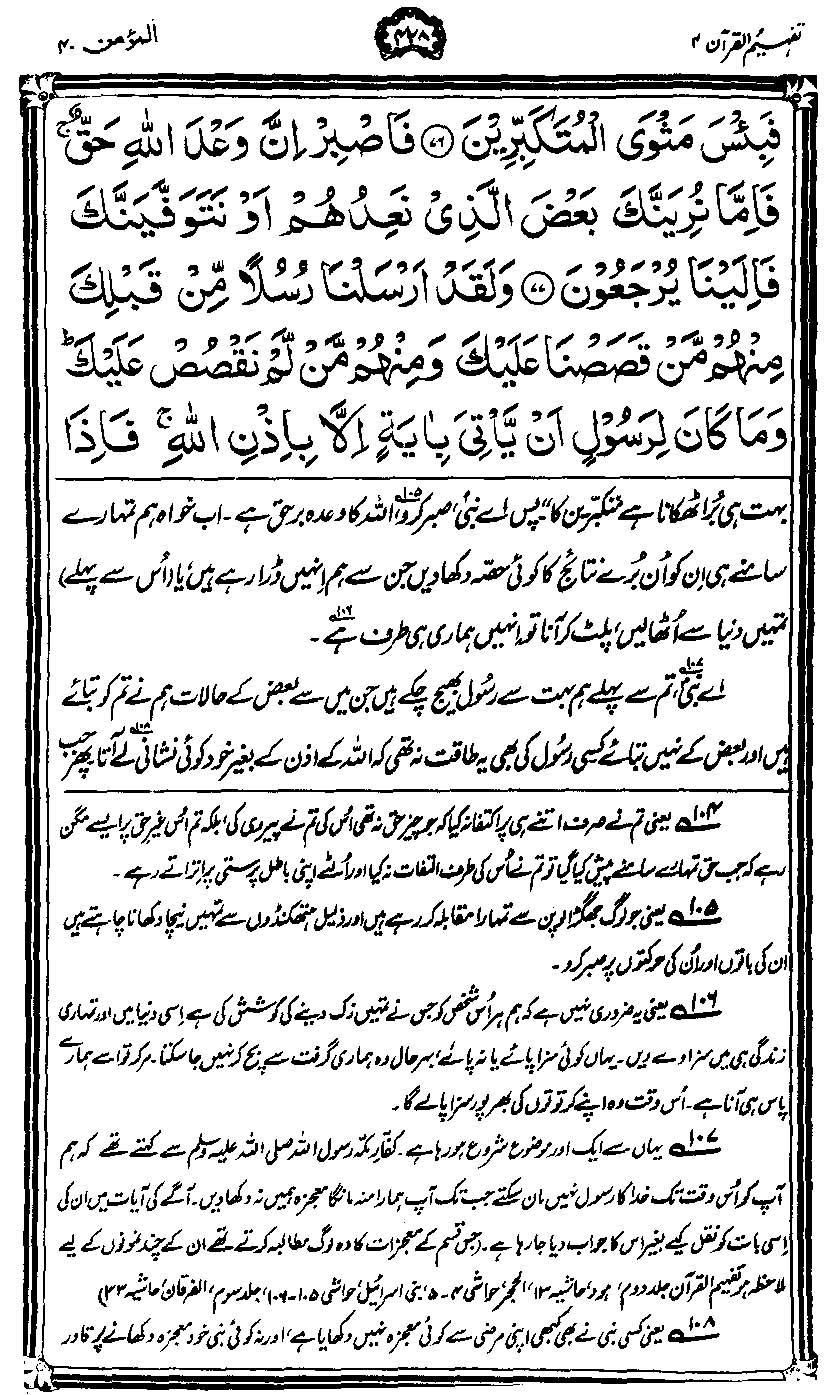 تفہیم القرآن ۴
۴۲۸
المؤمن ۴۰
فَبِئْسَ مَثْوَى الْمُتَكَبِّرِيْنَ ﴿۷۶﴾ فَاصْبِرْ اِنَّ وَعْدَ اللّٰهِ حَقٌّ ۚ
فَاِمَّا نُرِيَنَّكَ بَعْضَ الَّذِيْ نَعِدُهُمْ اَوْ نَتَوَفَّيَنَّكَ
فَاِلَيْنَا يُرْجَعُوْنَ ﴿۷۷﴾ وَلَقَدْ اَرْسَلْنَا رُسُلًا مِّنْ قَبْلِكَ
مِنْهُمْ مَّنْ قَصَصْنَا عَلَيْكَ وَمِنْهُمْ مَّنْ لَّمْ نَقْصُصْ عَلَيْكَ ؕ
وَمَا كَانَ لِرَسُوْلٍ اَنْ يَّاْتِيَ بِاٰيَةٍ اِلَّا بِاِذْنِ اللّٰهِ ۚ فَاِذَا
بہت ہی بُرا ٹھکانا ہے متکبّرین کا“ پس اے نبیؐ، صبر کرو،۱۰۵ اللہ کا وعدہ برحق ہے۔ اب خواہ ہم تمہارے
سامنے ہی اِن کو اُن بُرے نتائج کا کوئی حصّہ دکھا دیں جن سے ہم اِنہیں ڈرا رہے ہیں، یا (اُس سے پہلے)
تمہیں دنیا سے اُٹھا لیں، پلٹ کر آنا تو اِنہیں ہماری ہی طرف ہے۱۰۶۔
اے نبیؐ،۱۰۷ تم سے پہلے ہم بہت سے رسُول بھیج چکے ہیں جن میں سے بعض کے حالات ہم نے تم کو بتائے
ہیں اور بعض کے نہیں بتائے کسی رسُول کی بھی یہ طاقت نہ تھی کہ اللہ کے اذن کے بغیر خود کوئی نشانی لے آتا۱۰۸ پھر جب
۱۰۴ یعنی تم نے صرف اتنے ہی پر اکتفا نہ کیا کہ جو چیز حق نہ تھی اُس کی تم نے پیروی کی، بلکہ تم اُس غیرِ حق پر ایسے مگن
رہے کہ جب حق تمہارے سامنے پیش کیا گیا تو تم نے اُس کی طرف التفات نہ کیا اور اُلٹے اپنی باطل پرستی پر اِتراتے رہے۔
۱۰۵ یعنی جو لوگ جھگڑالو پن سے تمہارا مقابلہ کر رہے ہیں اور ذلیل ہتھکنڈوں سے تمہیں نیچا دکھانا چاہتے ہیں
ان کی باتوں اور اُن کی حرکتوں پر صبر کرو۔
۱۰۶ یعنی یہ ضروری نہیں ہے کہ ہم ہر اُس شخص کو جس نے تمہیں زک دینے کی کوشش کی ہے اِسی دنیا میں اور تمہاری
زندگی ہی میں سزا دے دیں۔ یہاں کوئی سزا پائے یا نہ پائے، بہرحال وہ ہماری گرفت سے بچ کر نہیں جا سکتا۔ مر کر تو اسے ہمارے
پاس ہی آنا ہے۔ اُس وقت وہ اپنے کرتوتوں کی بھرپور سزا پالے گا۔
۱۰۷ یہاں سے ایک اور موضوع شروع ہو رہا ہے۔ کفارِ مکہ رسول اللہ صلی اللہ علیہ وسلم سے کہتے تھے کہ ہم
آپ کو اُس وقت تک خدا کا رسول نہیں مان سکتے جب تک آپ ہمارا منہ مانگا معجزہ ہمیں نہ دکھا دیں۔ آگے کی آیات میں ان کی
اِسی بات کو نقل کیے بغیر اس کا جواب دیا جا رہا ہے۔ (جس قسم کے معجزات کا وہ لوگ مطالبہ کرتے تھے ان کے چند نمونوں کے لیے
ملاحظہ ہو تفہیم القرآن جلد دوم، ہود، حاشیہ ۱۳، الحجر، حواشی ۴۔۵، بنی اسرائیل، حواشی ۱۰۵۔۱۰۶، جلد سوم، الفرقان، حاشیہ ۳۳)
۱۰۸ یعنی کسی نبی نے بھی کبھی اپنی مرضی سے کوئی معجزہ نہیں دکھایا ہے، اور نہ کوئی نبی خود معجزہ دکھانے پر قادر